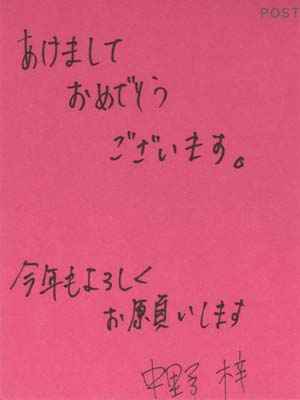 POST
あけまして
おめでとう
ございます。
今年もよろしく
お願いします
中野梓